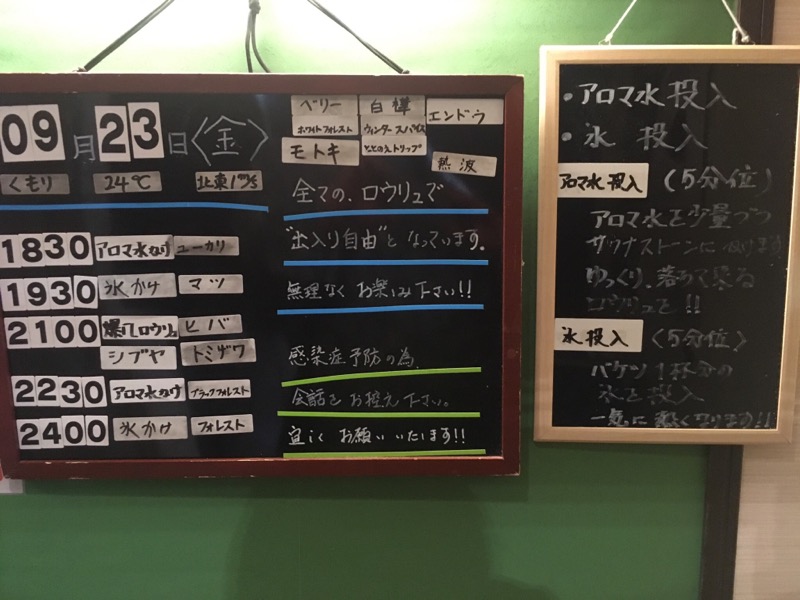 09月23日〈金〉
くもり 24℃ 北東1m/s
1830 アロマ水かけ ユーカリ
1930 氷かけ マツ
2100 爆風ロウリュ ヒバ
シブヤ トミザワ
2230 アロマ水かけ ブラックフォレスト
2400 氷かけ フォレスト
ベリー 白樺 エンドウ
ホワイトフォレスト ウィンタースパイス
モトキ ととのえトリップ
熱波
全ての、ロウリュで
"出入り自由"となっています。
無理なくお楽しみ下さい!!
感染症予防の為、
会話をお控え下さい。
宜しくお願いいたします!!
・アロマ水投入
・氷投入
アロマ水投入 (5分位)
アロマ水を少量づつ
サウナストーンにかけます
ゆっくり、落ちて来る
ロウリュです!!
氷投入 (5分位)
バケツ1杯分の
氷を投入
一気に熱くなります!!